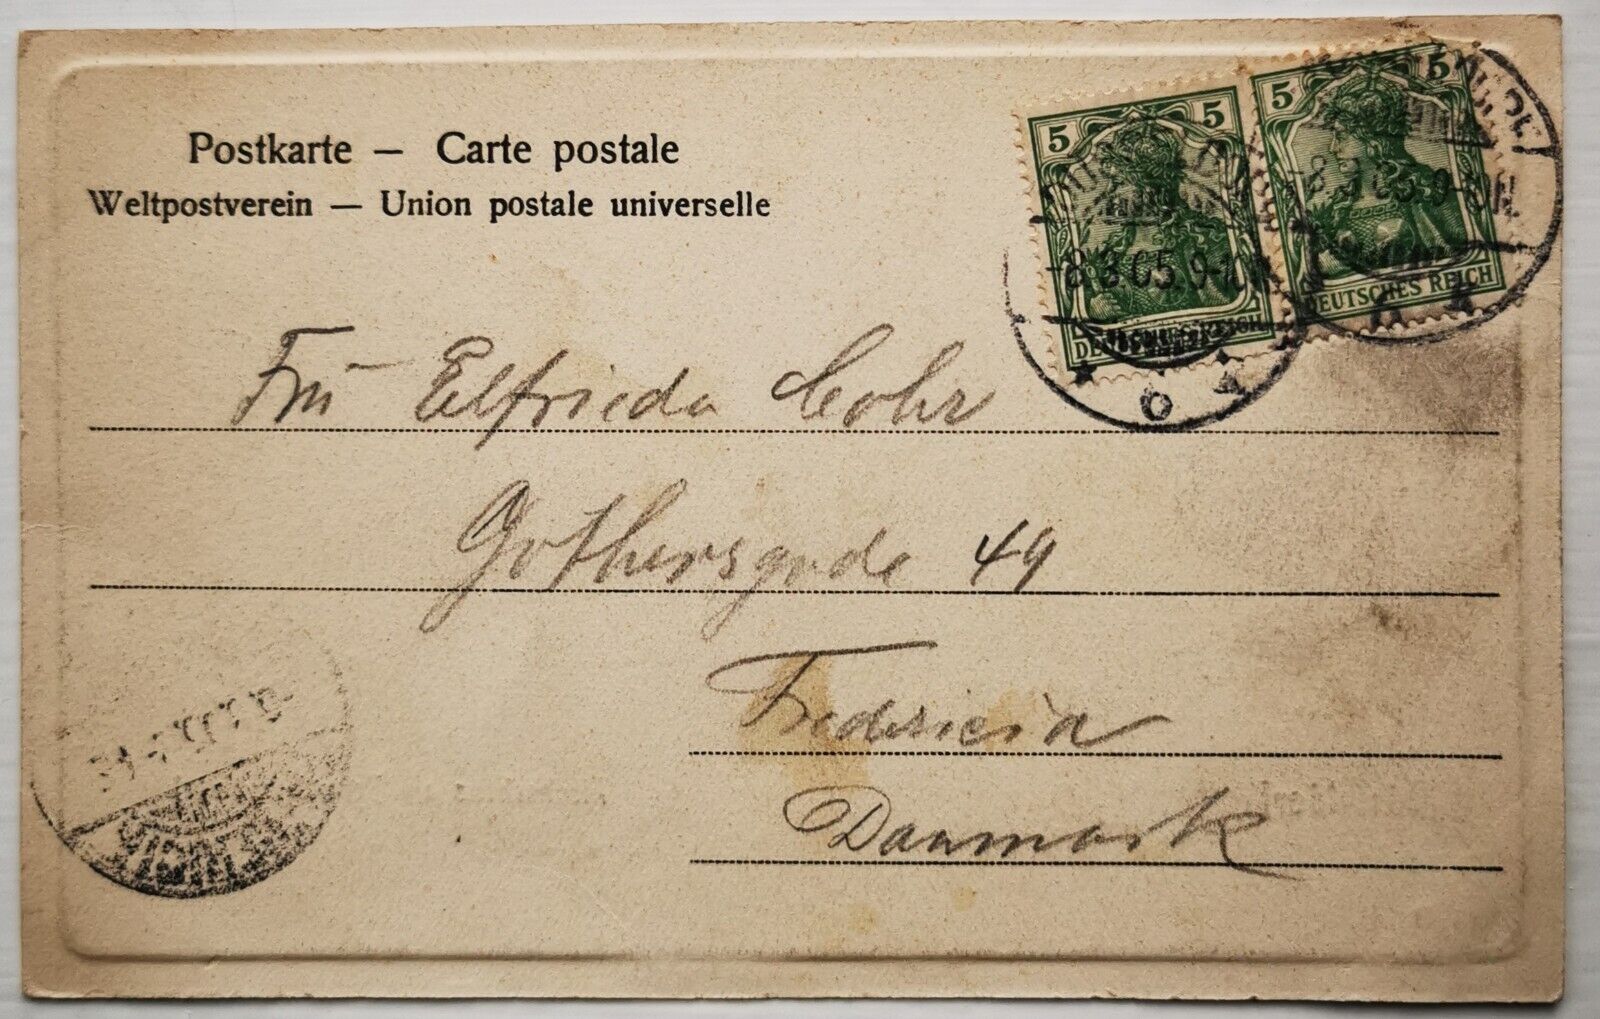 Postkarte – Carte postale
Weltpostverein – Union postale universelle
5 5
DEUTSCHES REICH
5 5
DEUTSCHES REICH
-8.3.05. 9-10
-8.3.05. 9-10N.
Frü Elfrieda Cohr
Gothersgade 49
Fredericia
Danmark